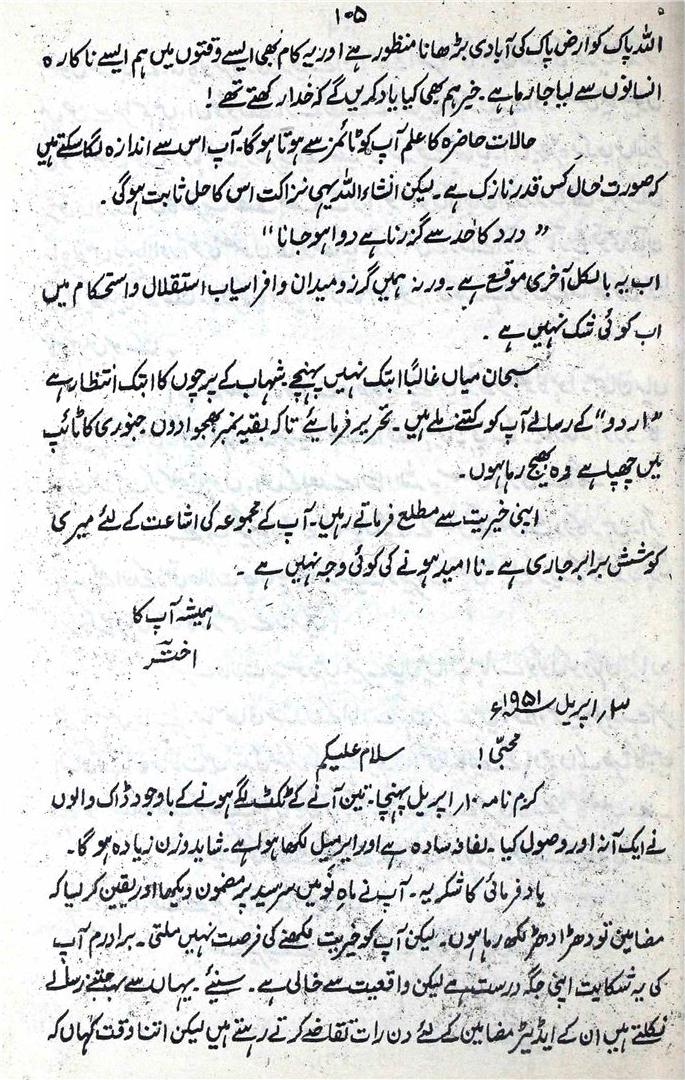 ۱۰۵
اللہ پاک کو ارض پاک کی آبادی بڑھانا منظور ہے اور یہ کام بھی ایسے وقتوں میں ہم ایسے ناکارہ
انسانوں سے لیا جا رہا ہے۔ خیر ہم بھی کیا یاد کریں گے کہ خدا رکھتے تھے !
حالات حاضرہ کا علم آپ کو ٹائمز سے ہوتا ہو گا۔ آپ اس سے اندازہ لگا سکتے ہیں
کہ صورت حال کس قدر نازک ہے۔ لیکن انشاء اللہ یہی نزاکت اس کا حل ثابت ہو گی۔
” درد کا حد سے گزرنا ہے دوا ہو جانا “
اب یہ بالکل آخری موقع ہے۔ ورنہ ہمیں گرز و میدان و افراسیاب استقلال و استحکام میں
اب کوئی شک نہیں ہے ۔
سبحان میاں غالباً ابتک نہیں پہنچے۔ شہاب کے پرچوں کا ابتک انتظار ہے
”اردو“ کے رسالے آپ کو کتنے ملے ہیں۔ تحریر فرمائیے تاکہ بقیہ نمبر بھجوا دوں۔ جنوری کا ٹائپ
میں چھپا ہے وہ بھیج رہا ہوں۔
اپنی خیریت سے مطلع فرماتے رہیں۔ آپ کے مجموعہ کی اشاعت کے لئے میری
کوشش برابر جاری ہے۔ نا امید ہونے کی کوئی وجہ نہیں ہے ۔
ہمیشہ آپ کا
اختر
اپریل ۱۹۵۱ء
محبی ! سلام علیکم
کرم نامہ ۱۰ اپریل پہنچا۔ تین آنے کے ٹکٹ لگے ہونے کے باوجود ڈاک والوں
نے ایک آنہ اور وصول کیا۔ لفافہ سادہ ہے اور ایرمیل لکھا ہوا ہے۔ شاید وزن زیادہ ہو گا۔
یاد فرمائی کا شکریہ۔ آپ نے ماہ نو میں سرسید پر مضمون دیکھا اور یقین کر لیا کہ
مضامین تو دھڑا دھڑ لکھ رہا ہوں۔ لیکن آپ کو خیریت لکھنے کی فرصت نہیں ملتی۔ برادرم آپ
کی یہ شکایت اپنی جگہ درست ہے لیکن واقعیت سے خالی ہے۔ سنیئے۔ یہاں سے جتنے رسالے
نکلتے ہیں ان کے ایڈیٹر مضامین کے لئے دن رات تقاضے کرتے رہتے ہیں لیکن اتنا وقت کہاں کہ